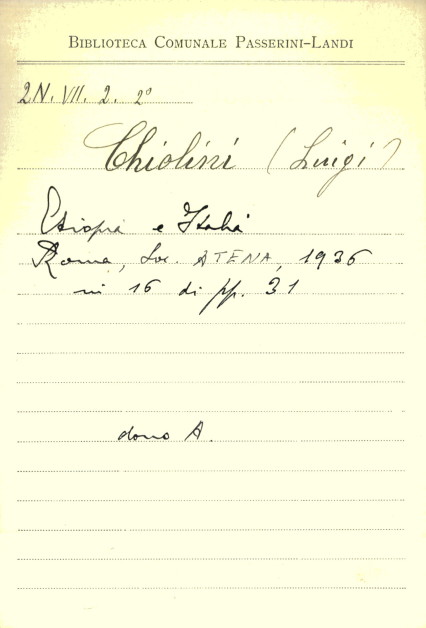 BIBLIOTECA COMUNALE PASSERINI-LANDI
2N. VII. 2. 2°
Chiolini (Luigi)
Etiopia e Italia
Roma, Soc. ATENA, 1936
in 16 di pp. 31
dono A.